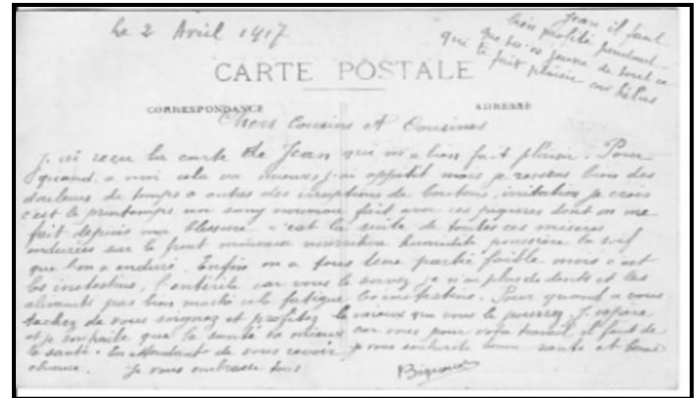 Le 2 Avril 1917
Jean il faut
bien profité pendant
que tu es jeune de tout ce
que te fait plaisir car hélas
CARTE POSTALE
CORRESPONDANCE
ADRESSE
Chers Cousins et Cousines
J'ai reçu la carte de Jean qui m'a bien fait plaisir. Pour
quand a moi cela va mieux j'ai appétit mais je ressens bien des
douleurs de temps a autres des éruptions de boutons, irritation je crois
c'est le printemps un sang nouveau fait avec ces piqures dont on me
fait depuis ma blessure c'est la suite de toutes ces misères
endurées sur le front mauvaise nourriture humidité poussière la soif
que l'on a enduré. Enfin on a tous une partie faible moi c'est
les intestins, l'entérite car vous le savez je n'ai plus de dents et les
aliments pas bien maché cela fatigue les intestins. Pour quand a vous
tachez de vous soignez et profitez le mieux que vous le pourrez. J'espère
et je souhaite que la santé va mieux car vous pour votre travail il faut de
la santé. En attendant de vous revoir je vous souhaite bonne santé et bonne
chance. Je vous embrasse tous